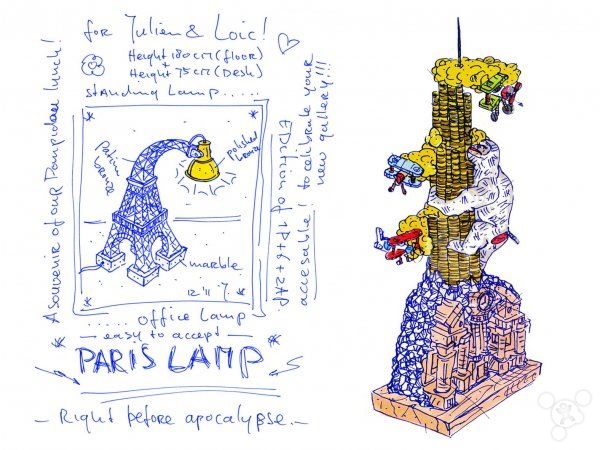 for Julien & Loic!
Height 180 cm (floor)
+
Height 75 cm (Desk)
standing Lamp.....
A souvenir of our Pompidou lunch!
patin bronze
polished bronze
marble
12.'11
Edition of 1P+6+2AP
accesable! to celibrate your new gallery!!!
..... office Lamp
— easy to accept —
* PARIS LAMP *
– Right before apocalypse. –